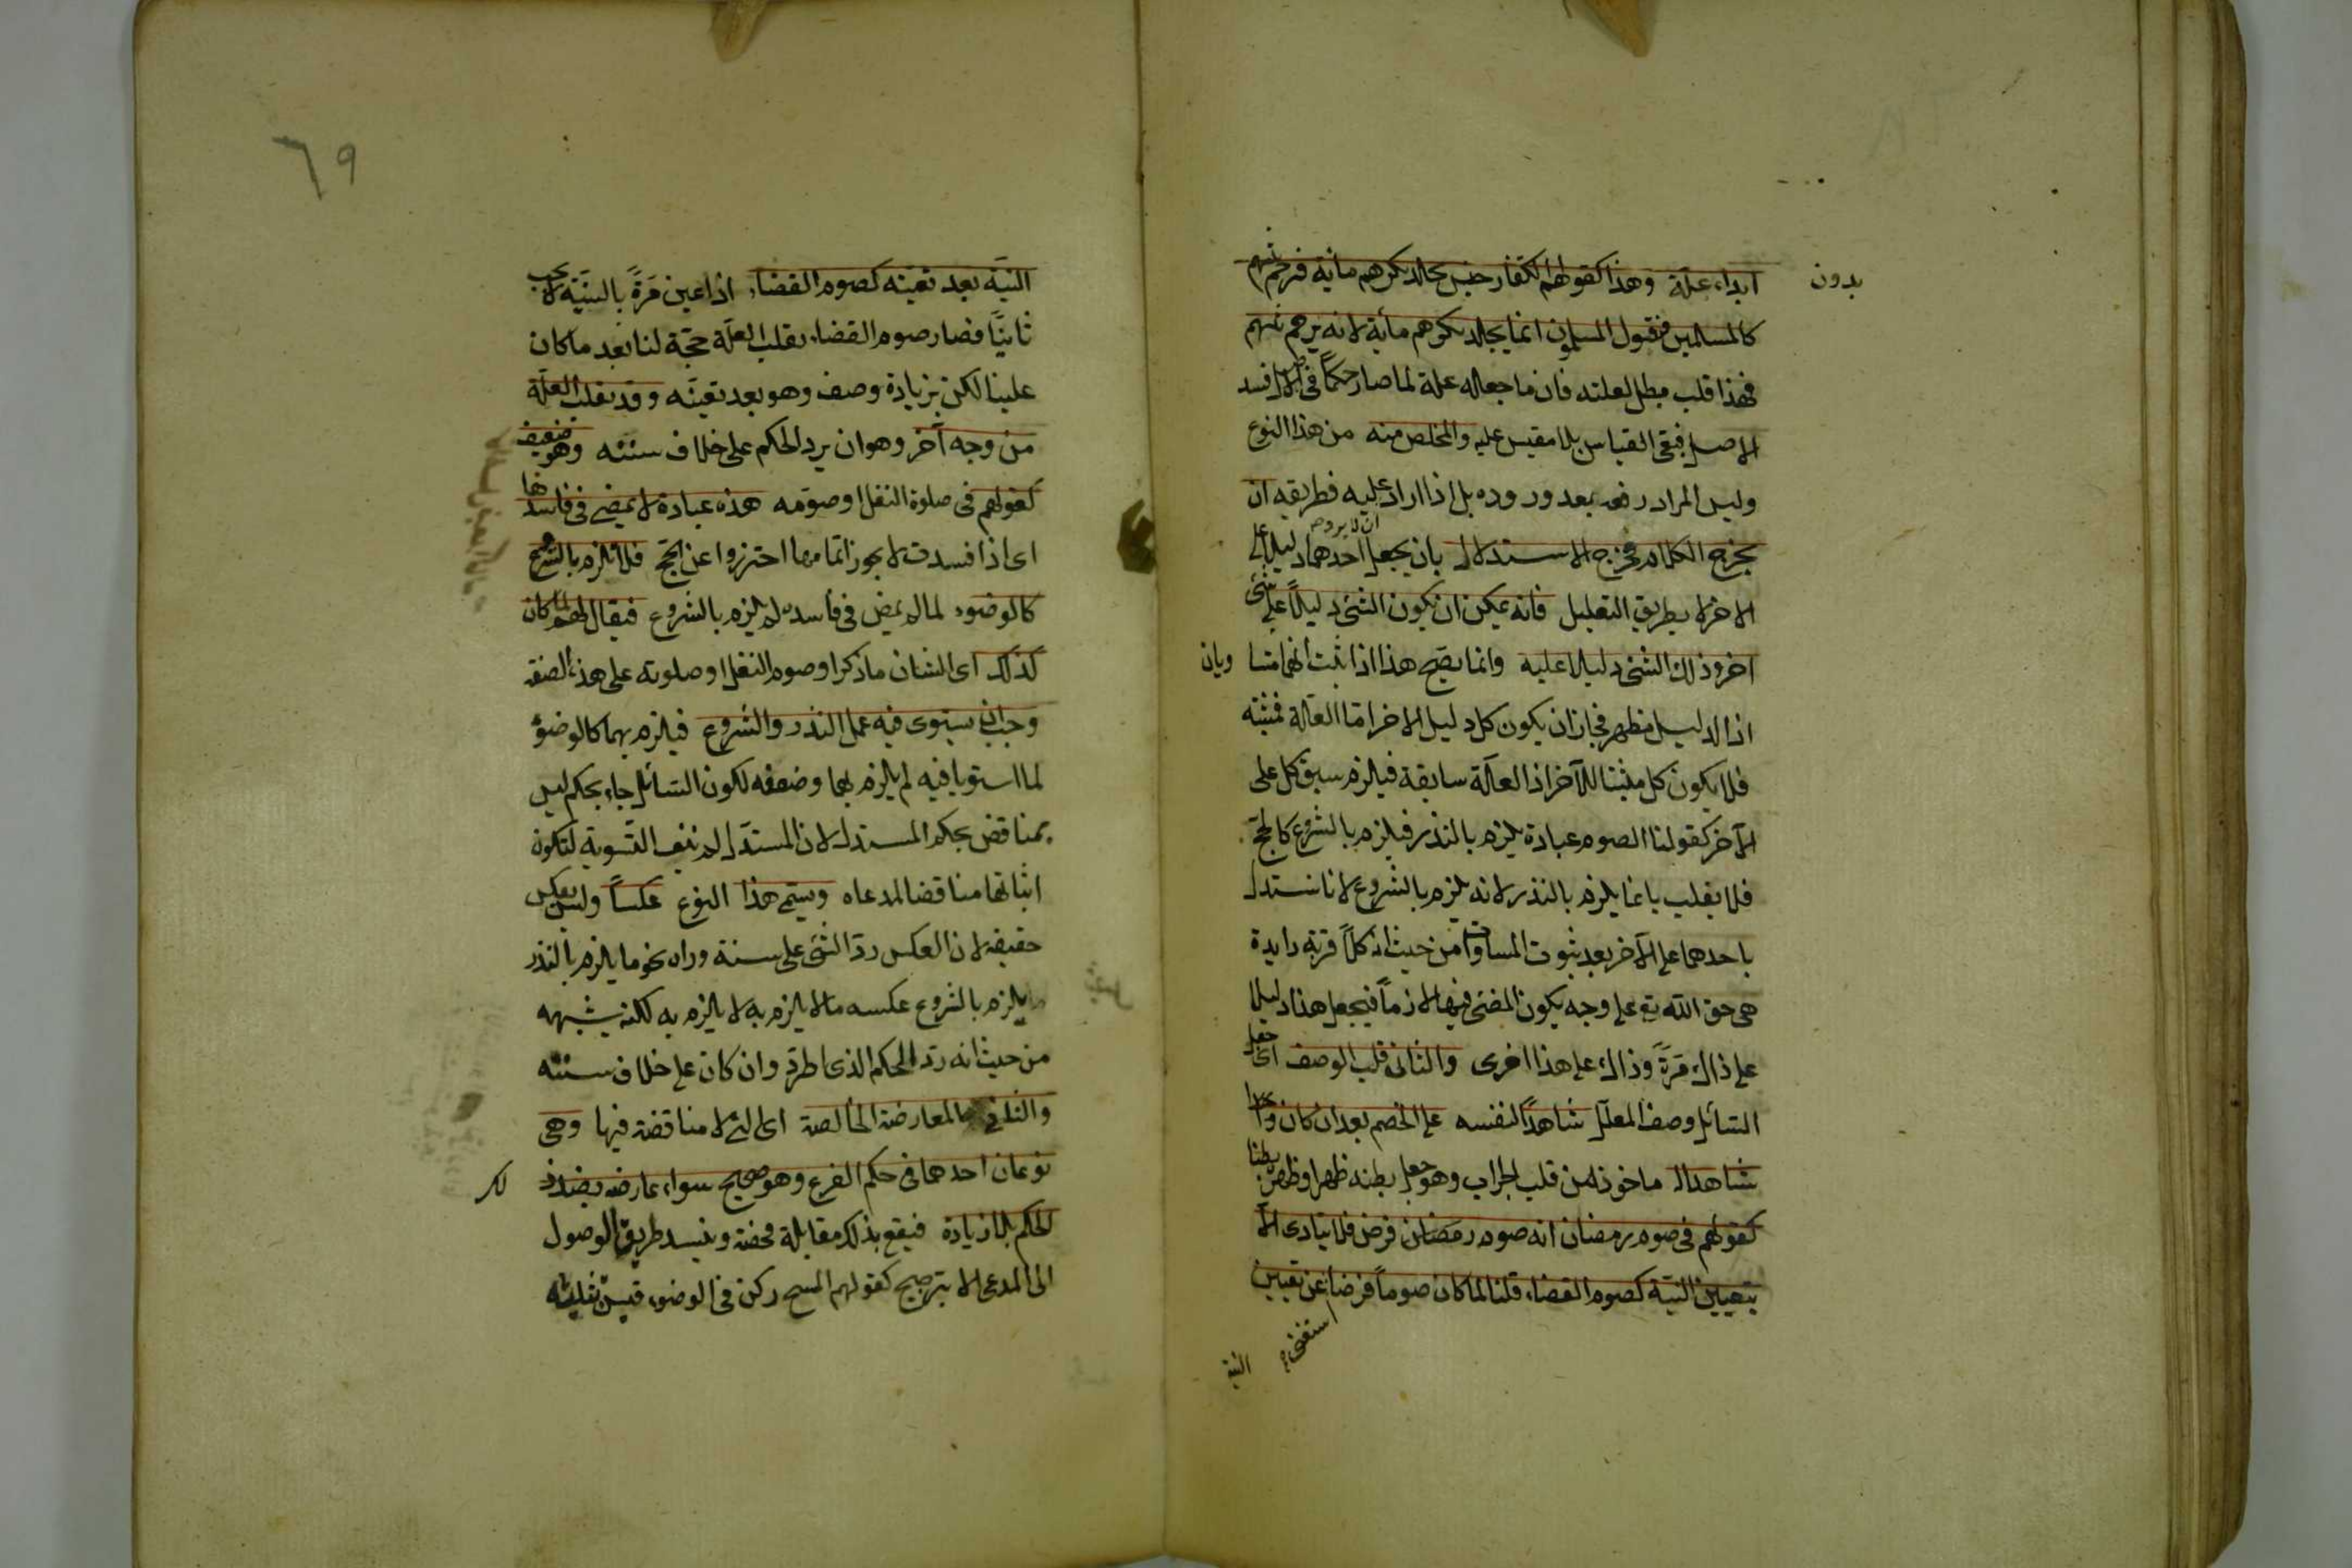 ابداء علة وهذا كقولهم الكفار جنس يجلد بكرهم مائة فيرجم ثيبهم
بدون
كالمسلمين فنقول المسلمون انما يجلد بكرهم مأية لانه يرجم ثيبهم
فهذا قلب مبطل لعلته فان ما جعله علة لما صار حكماً في الاصل فسد
الاصل فبقى القياس بلا مقيس عليه والمخلص منه من هذا النوع
وليس المراد رفعه بعد وروده بل اذا اراد عليه فطريقه ان
ان لا يرد
يخرج الكلام مخرج الاستدلال بان يجعل احدهما دليلا على
الاخر لا بطريق التعليل فانه يمكن ان يكون الشئ دليلاً على شئ
اخر وذلك الشئ دليلا عليه وانما يصح هذا اذا ثبت انهما متسا ويان
اذ الدليل مظهر فجاز ان يكون كل دليل الاخر اما العلة فمثبتة
فلا يكون كل مثبتا للآخر اذ العلة سابقة فيلزم سبق كل على
الآخر كقولنا الصوم عبادة يلزم بالنذر فيلزم بالشروع كالحج
فلا يقلب بانما يلزم بالنذر لانه يلزم بالشروع لانا نستدل
باحدهما على الآخر بعد ثبوت المساواة من حيث ان كلاً قربة زايدة
هى حق الله تع على وجه يكون المضى فيها لازماً فيجعل هذا دليلا
على ذاك مَرّةً وذاك على هذا اخرى والثانى قلب الوصف اى جعل
السائل وصف المعلل شاهداً لنفسه على الخصم بعد ان كان واحدا
شاهدا له ماخوذ من قلب الجراب وهو جعل بطنه ظهرا وظهره بطنا
كقولهم فى صوم رمضان انه صوم رمضان فرض فلا يتادى الا
بتعيين النية كصوم القضاء قلنا لما كان صوماً فرضا عن تعيين
استغنى
النية
٦٩
النيّة بعد تعيّنه كصوم القضاء اذا عين مَرةً بالنيّة لا يجب
ثانيًا فصار صوم القضاء بقلب العلّة حجّة لنا بعد ما كان
علينا لكن بزيادة وصف وهو بعد تعيّنه وقد تقلب العلّة
من وجه آخر وهو ان يرد الحكم على خلاف سننه وهو ضعيف
كقولهم فى صلوة النفل او صومه هذه عبادة لا يمضى فى فاسدها
اى اذا فسدت لا يجوز اتمامها احترزوا عن الحج فلا تلزم بالشروع
كالوضوء لما لم يمض فى فاسده لم يلزم بالشروع فيقال لهم لما كان
كذلك اى الشان ما ذكر او صوم النفل او صلوته على هذه الصفة
وجب ان يستوى فيه عمل النذر والشروع فيلزم بهما كالوضوء
لما استويا فيه لم يلزم بهما وضعفه لكون السائل جاء بحكم ليس
بمناقض بحكم المستدل لان المستدل لم ينف التسوية لتكون
اثباتها مناقضا لمدعاه ويسمى هذا النوع عكساً وليس بعكس
حقيقة لان العكس ردّ الشئ على سننه وراءه نحو ما يلزم بالنذر
يلزم بالشروع عكسه ما لا يلزم به لا يلزم به لكنه يشبهه
من حيث انه رد للحكم الذى اطرد وان كان على خلاف سننه
والثانى المعارضة الخالصة اى التى لا مناقضة فيها وهى
نوعان احدهما فى حكم الفرع وهو صحيح سواء عارضه بضد ذ لك
الحكم بلا زيادة فيقع بذلك مقابلة محضة وينسد طريق الوصول
الى المدعى الا بترجيح كقولهم المسح ركن فى الوضوء فيسن تثليثه